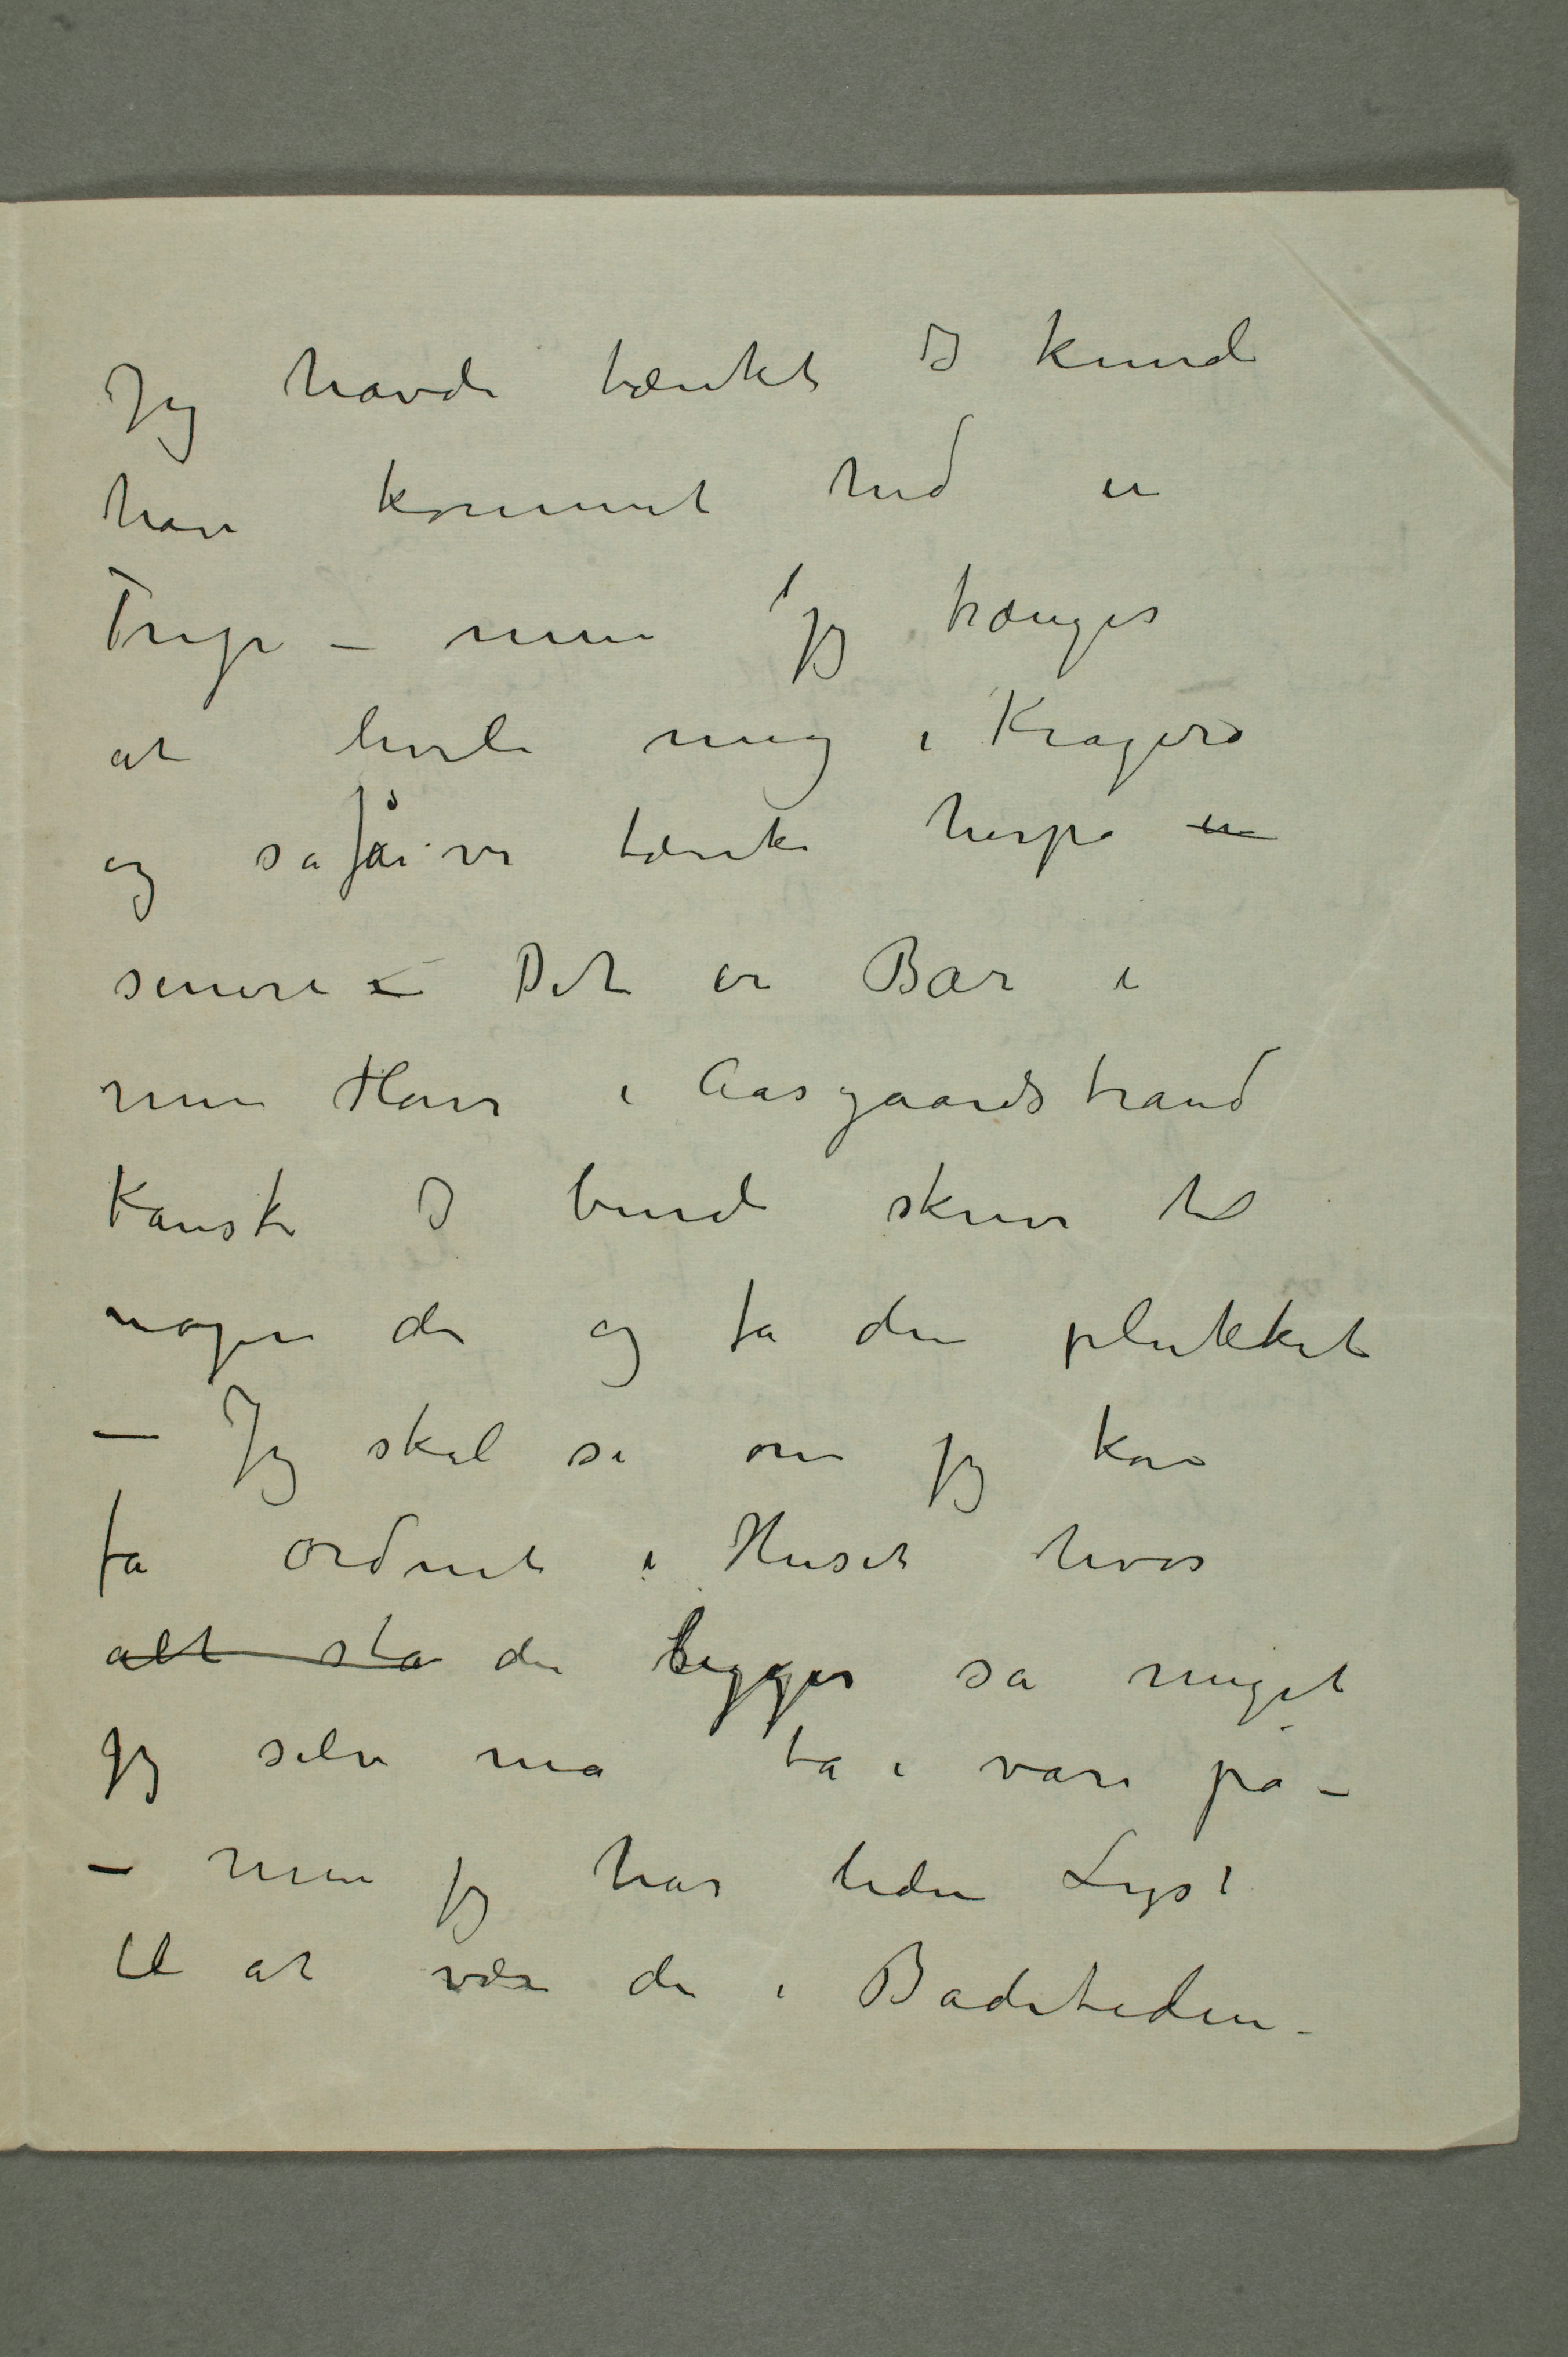 Jeg havde tænkt I kunde
have kommet hid en
Trip – men jeg trænger
at hvile mig i Kragerø
og så får vi tænke herpå en
senere – Det er Bær i
min Have i Aasgaardstrand
Kanske I burde skrive til
nogen der og få den plukket
– Jeg skal se om jeg kan
få ordnet i Huset hvor
alt stå der ligger så meget
jeg selv må ta i vare på –
– men jeg har liden Lyst
til at være der i Badetiden –